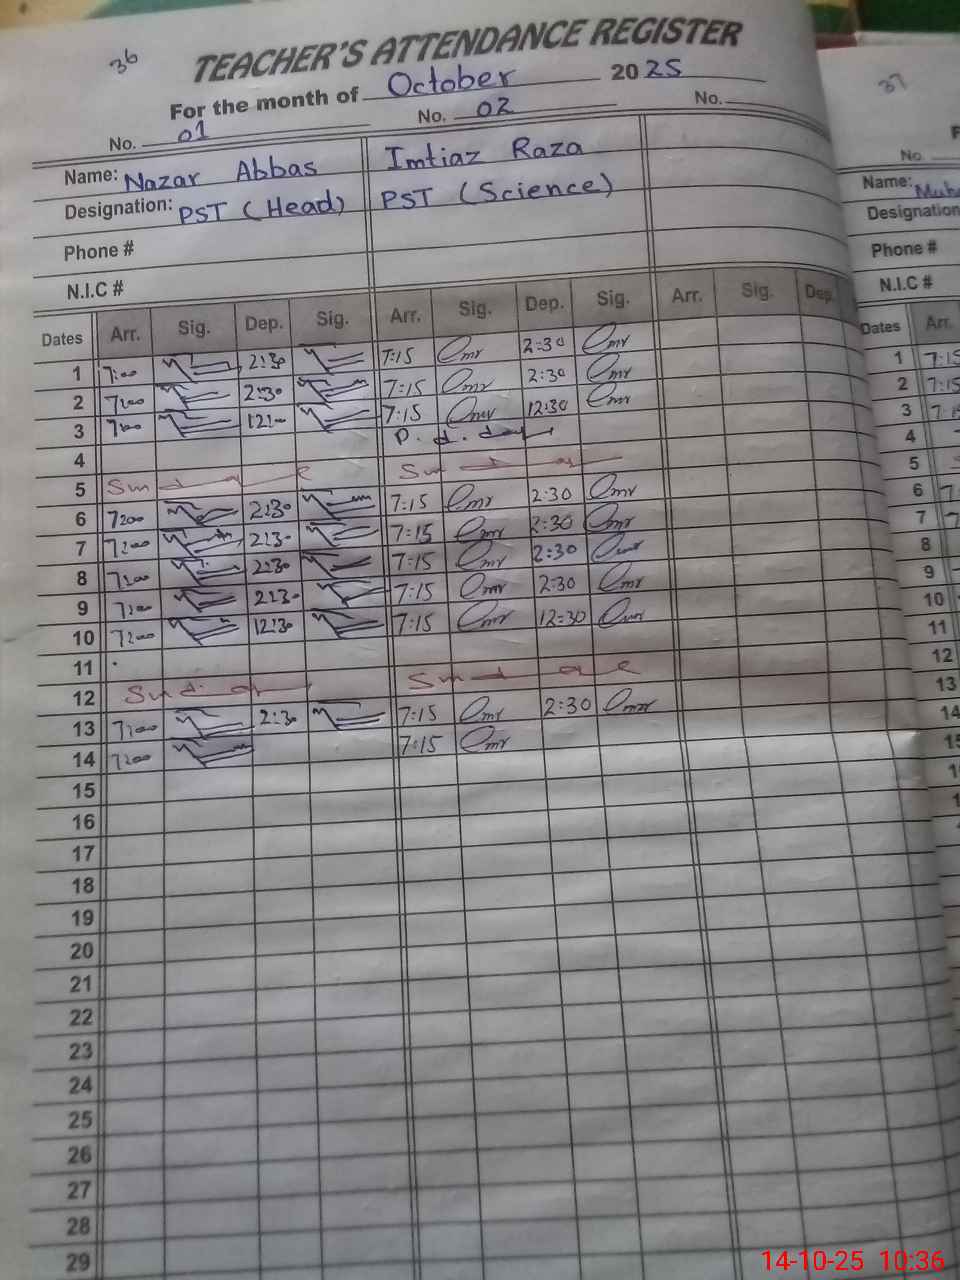 36
TEACHER'S ATTENDANCE REGISTER
For the month of October 2025
No. 01 No. 02 No.
Name: Nazar Abbas Imtiaz Raza
Designation: PST (Head) PST (Science)
Phone #
N.I.C #
Dates Arr. Sig. Dep. Sig. Arr. Sig. Dep. Sig. Arr. Sig. Dep.
1 7:00 2:30 7:15 2:30
2 7:00 2:30 7:15 2:30
3 7:00 7:15 12:30
4 P.d.day
5 Sunday Sunday
6 7:00 2:30 7:15 2:30
7 7:00 2:30 7:15 2:30
8 7:00 2:30 7:15 2:30
9 7:00 2:30 7:15 2:30
10 7:00 12:30 7:15 12:30
11
12 Sunday Sunday
13 7:00 2:30 7:15 2:30
14 7:00 7:15
15
16
17
18
19
20
21
22
23
24
25
26
27
28
29
37
No
Name:
Designation
Phone #
N.I.C #
Dates Arr.
1 7:15
2 7:15
3
4
5
6
7
8
9
10
11
12
13
14
14-10-25 10:36